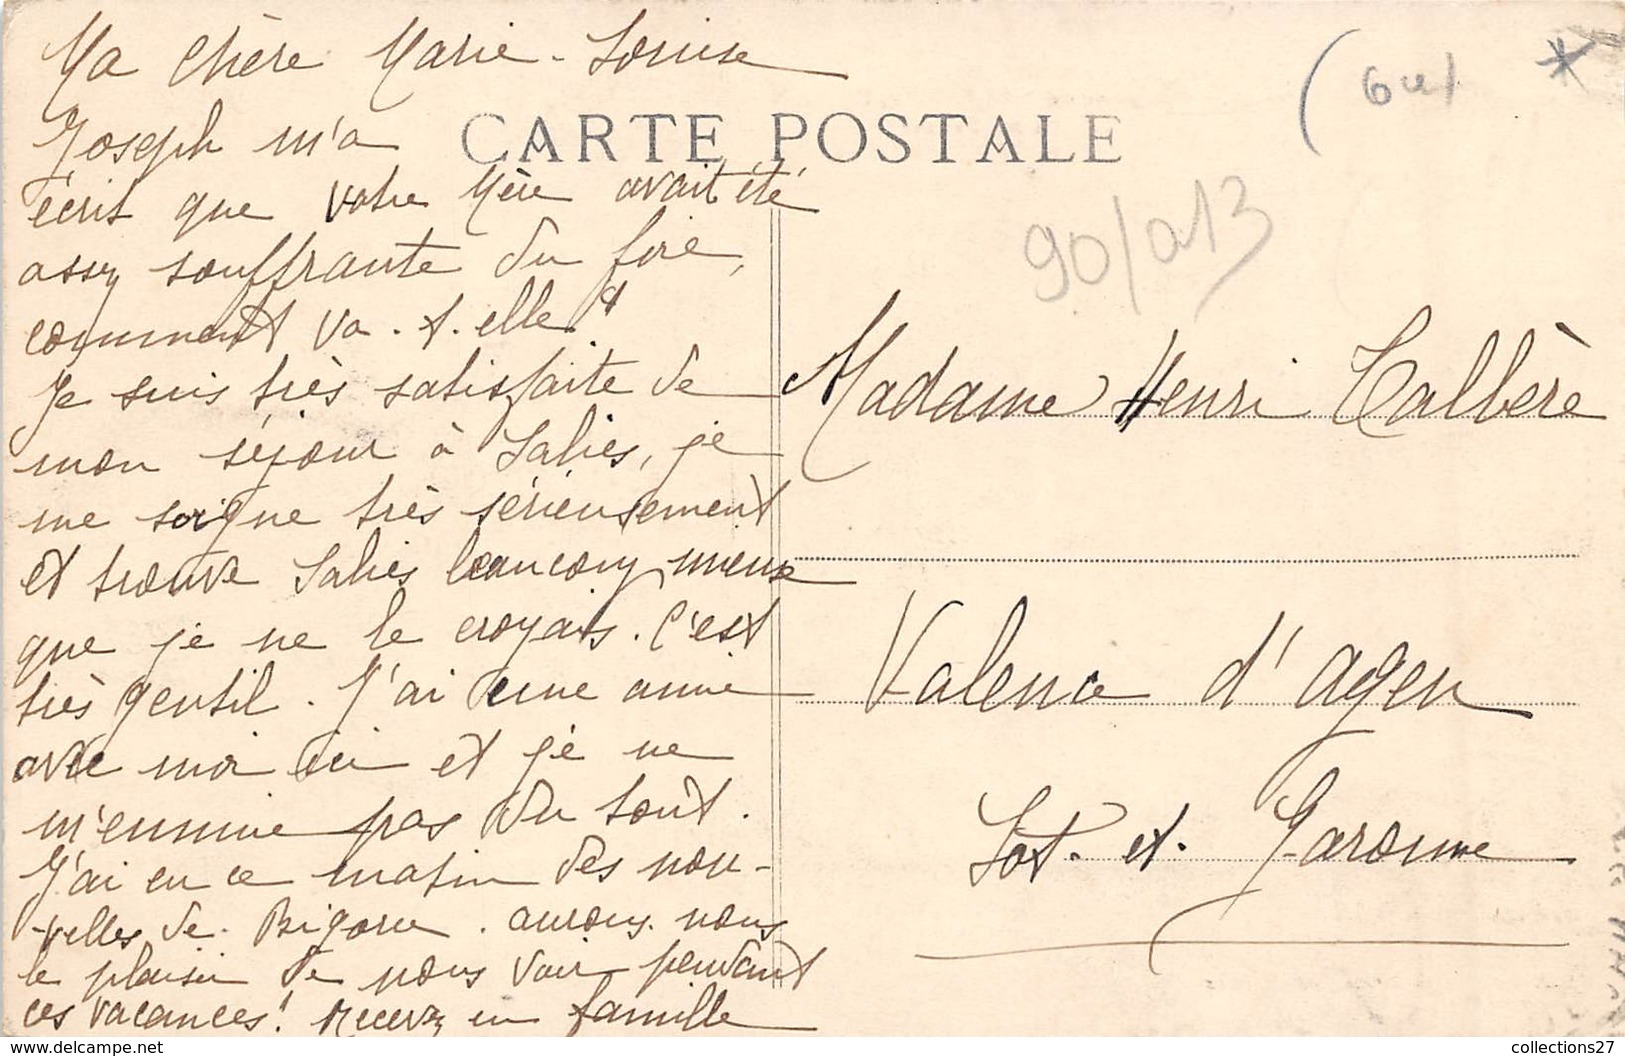 Ma chère Marie-Louise
Joseph m'a
écrit que votre Mère avait été
assez souffrante du foie,
comment va-t-elle?
Je suis très satisfaite de
mon séjour à Salies, je
me soigne très sérieusement
et trouve Salies beaucoup mieux
que je ne le croyais. C'est
très gentil. J'ai une amie
avec moi ici et je ne
m'ennuie pas du tout.
J'ai eu ce matin des nou-
velles de Bigorre. aurons nous
le plaisir de nous voir pendant
ces vacances! Recevez en famille
CARTE POSTALE
90/013
Madame Henri Calbère
Valence d'Agen
Lot. et. Garonne
collections27